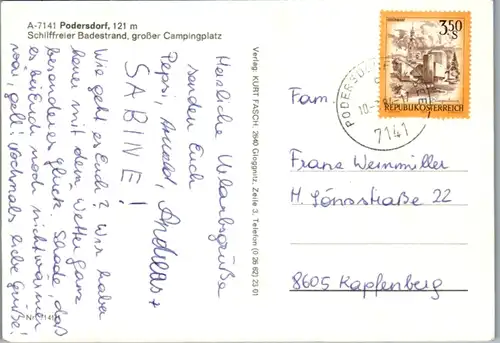 A-7141 Podersdorf, 121 m
Schilffreier Badestrand, großer Campingplatz
Herzliche Urlaubsgrüße
senden Euch
Pepsi, Arnold, Andreas +
SABINE!
Wie geht es Euch? Wir haben
heuer mit dem Wetter ganz
besonderes Glück. Schade, daß
es bei Euch noch nicht wärmer
war, gell! Nochmals liebe Grüße!
Verlag: KURT FASCH, 2640 Gloggnitz, Zeile 3, Telefon (0 26 62) 23 01
3.50
S
REPUBLIK ÖSTERREICH
PODERSDORF
7141
Fam.
Franz Weinmüller
H. Lönsstraße 22
8605 Kapfenberg